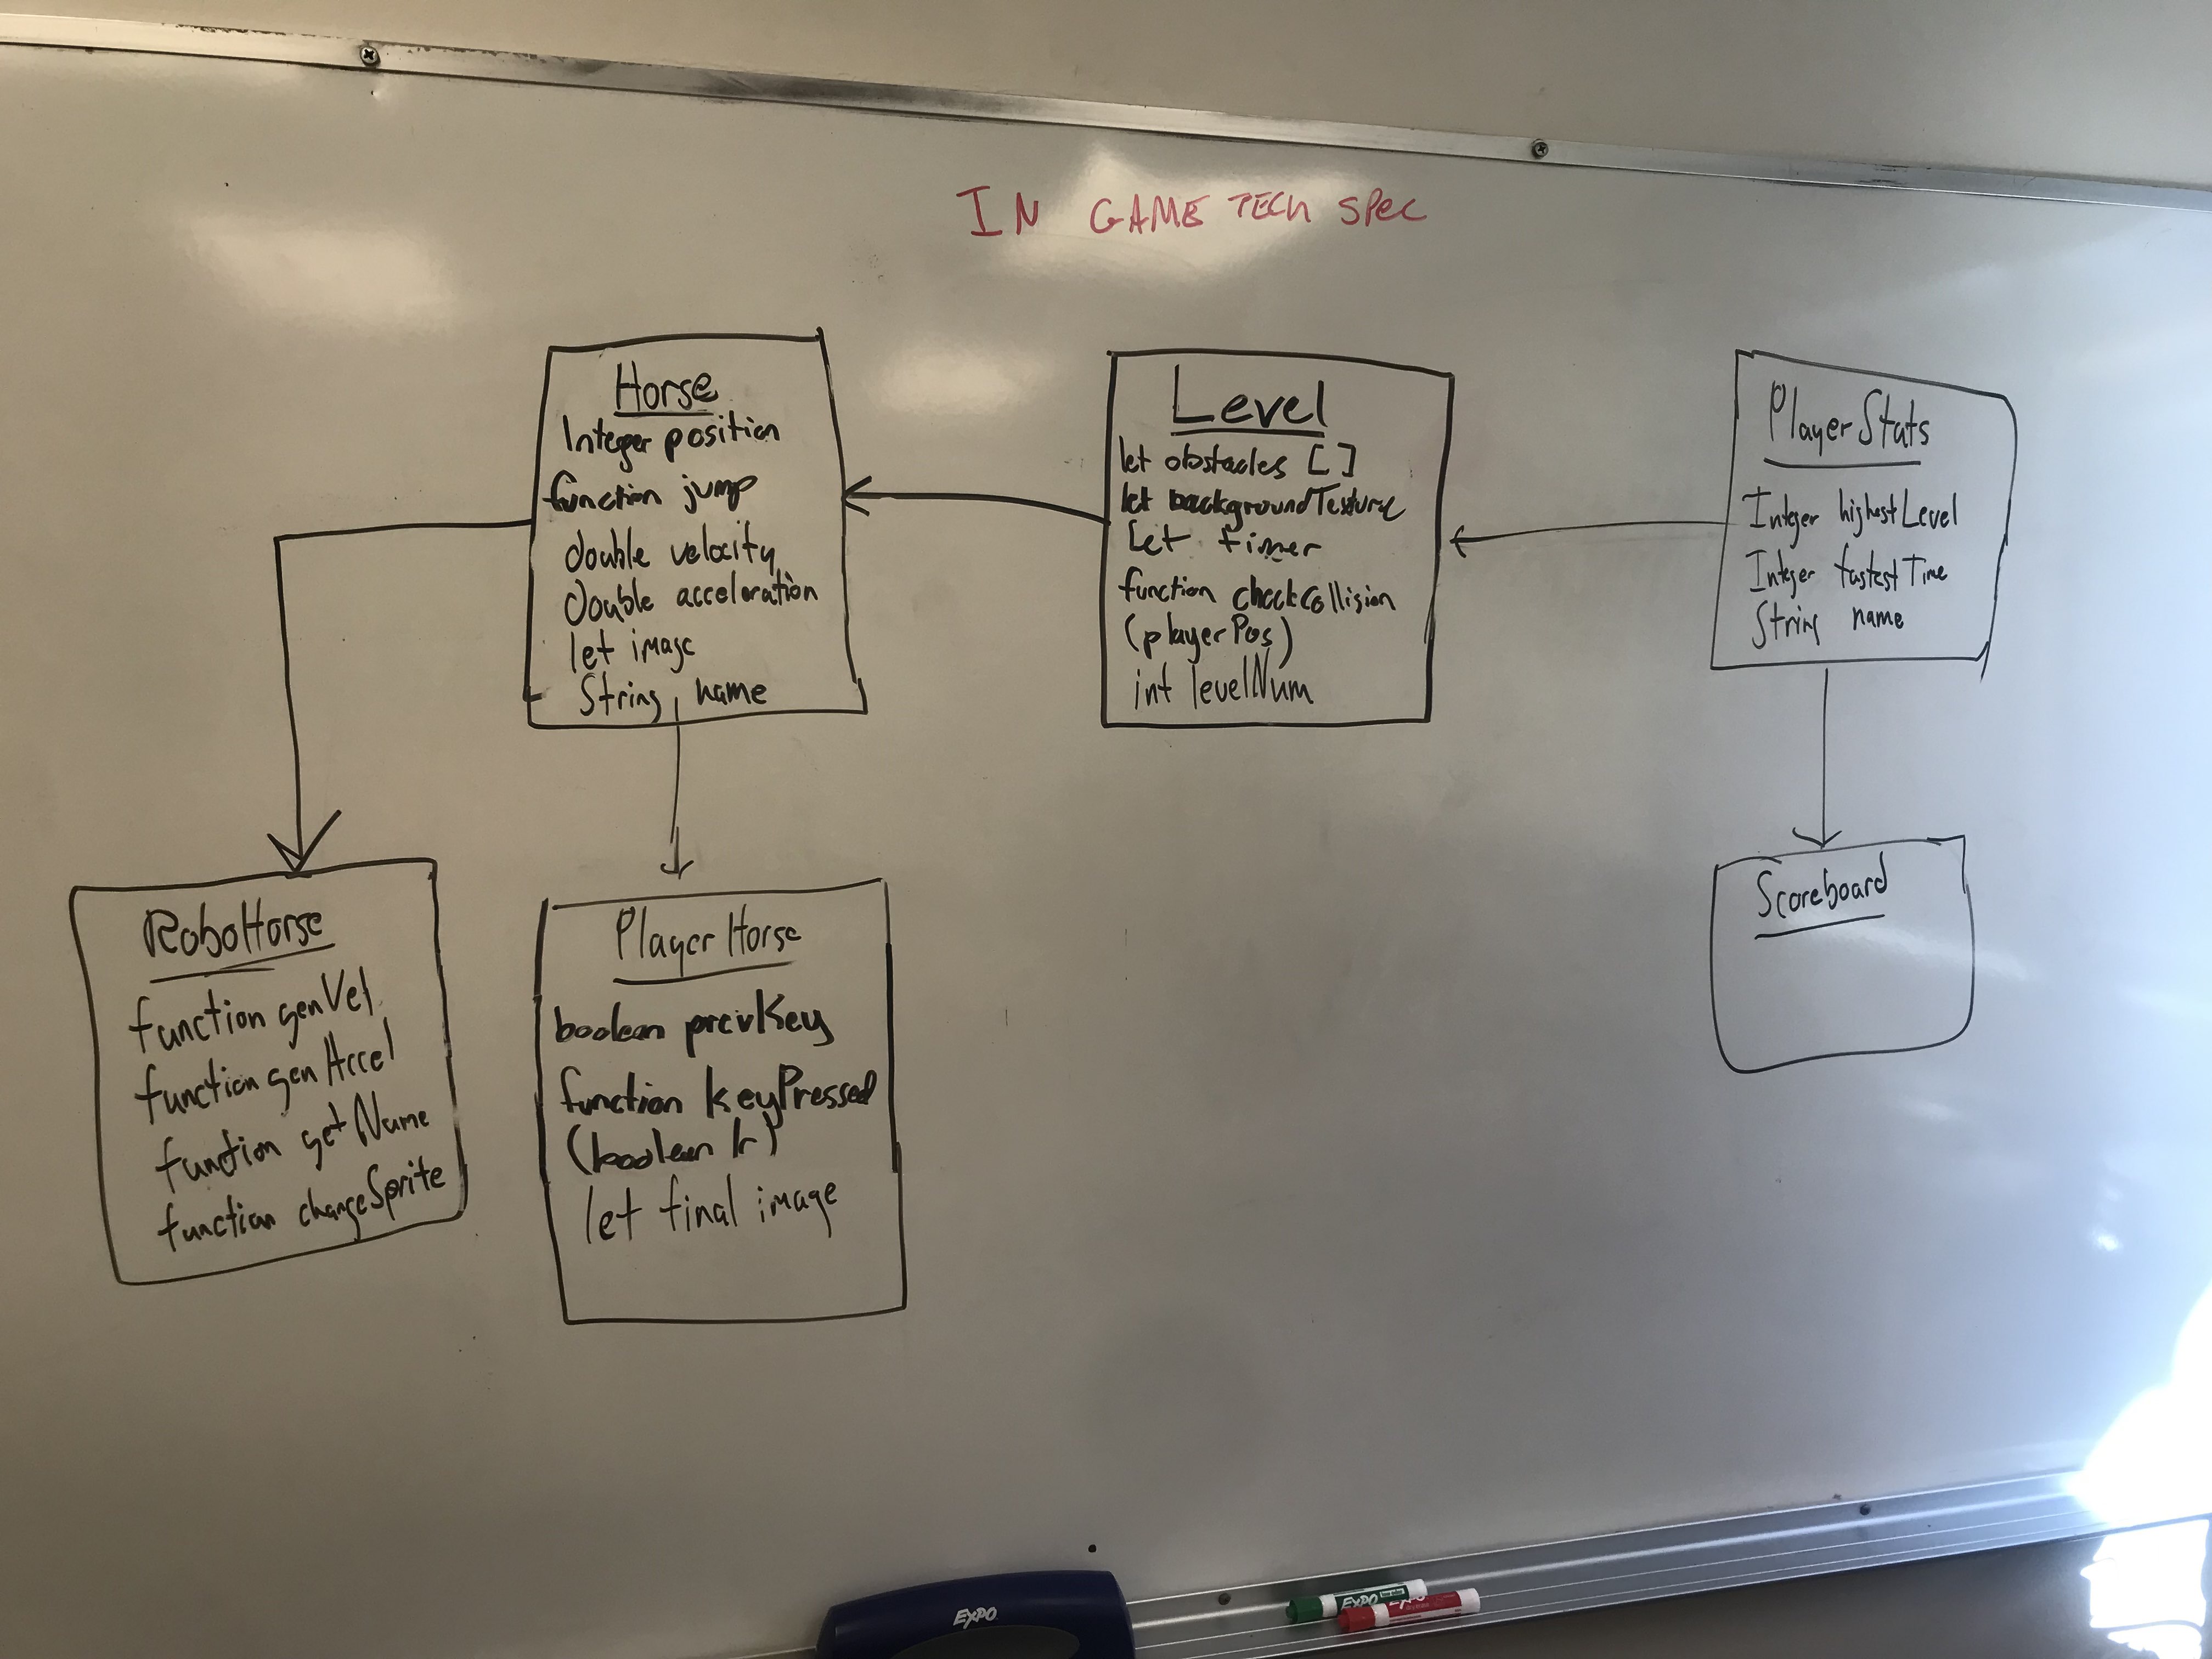 IN GAME TECH SPEC
Horse
Integer position
function jump
double velocity
double acceleration
let image
String name
Level
let obstacles []
let backgroundTexture
Let timer
function checkCollision
(playerPos)
int levelNum
PlayerStats
Integer highestLevel
Integer fastestTime
String name
RoboHorse
function genVel
function genAccel
function getName
function changeSprite
PlayerHorse
boolean prevKey
function keyPressed
(boolean lr)
let final image
Scoreboard
EXPO
EXPO